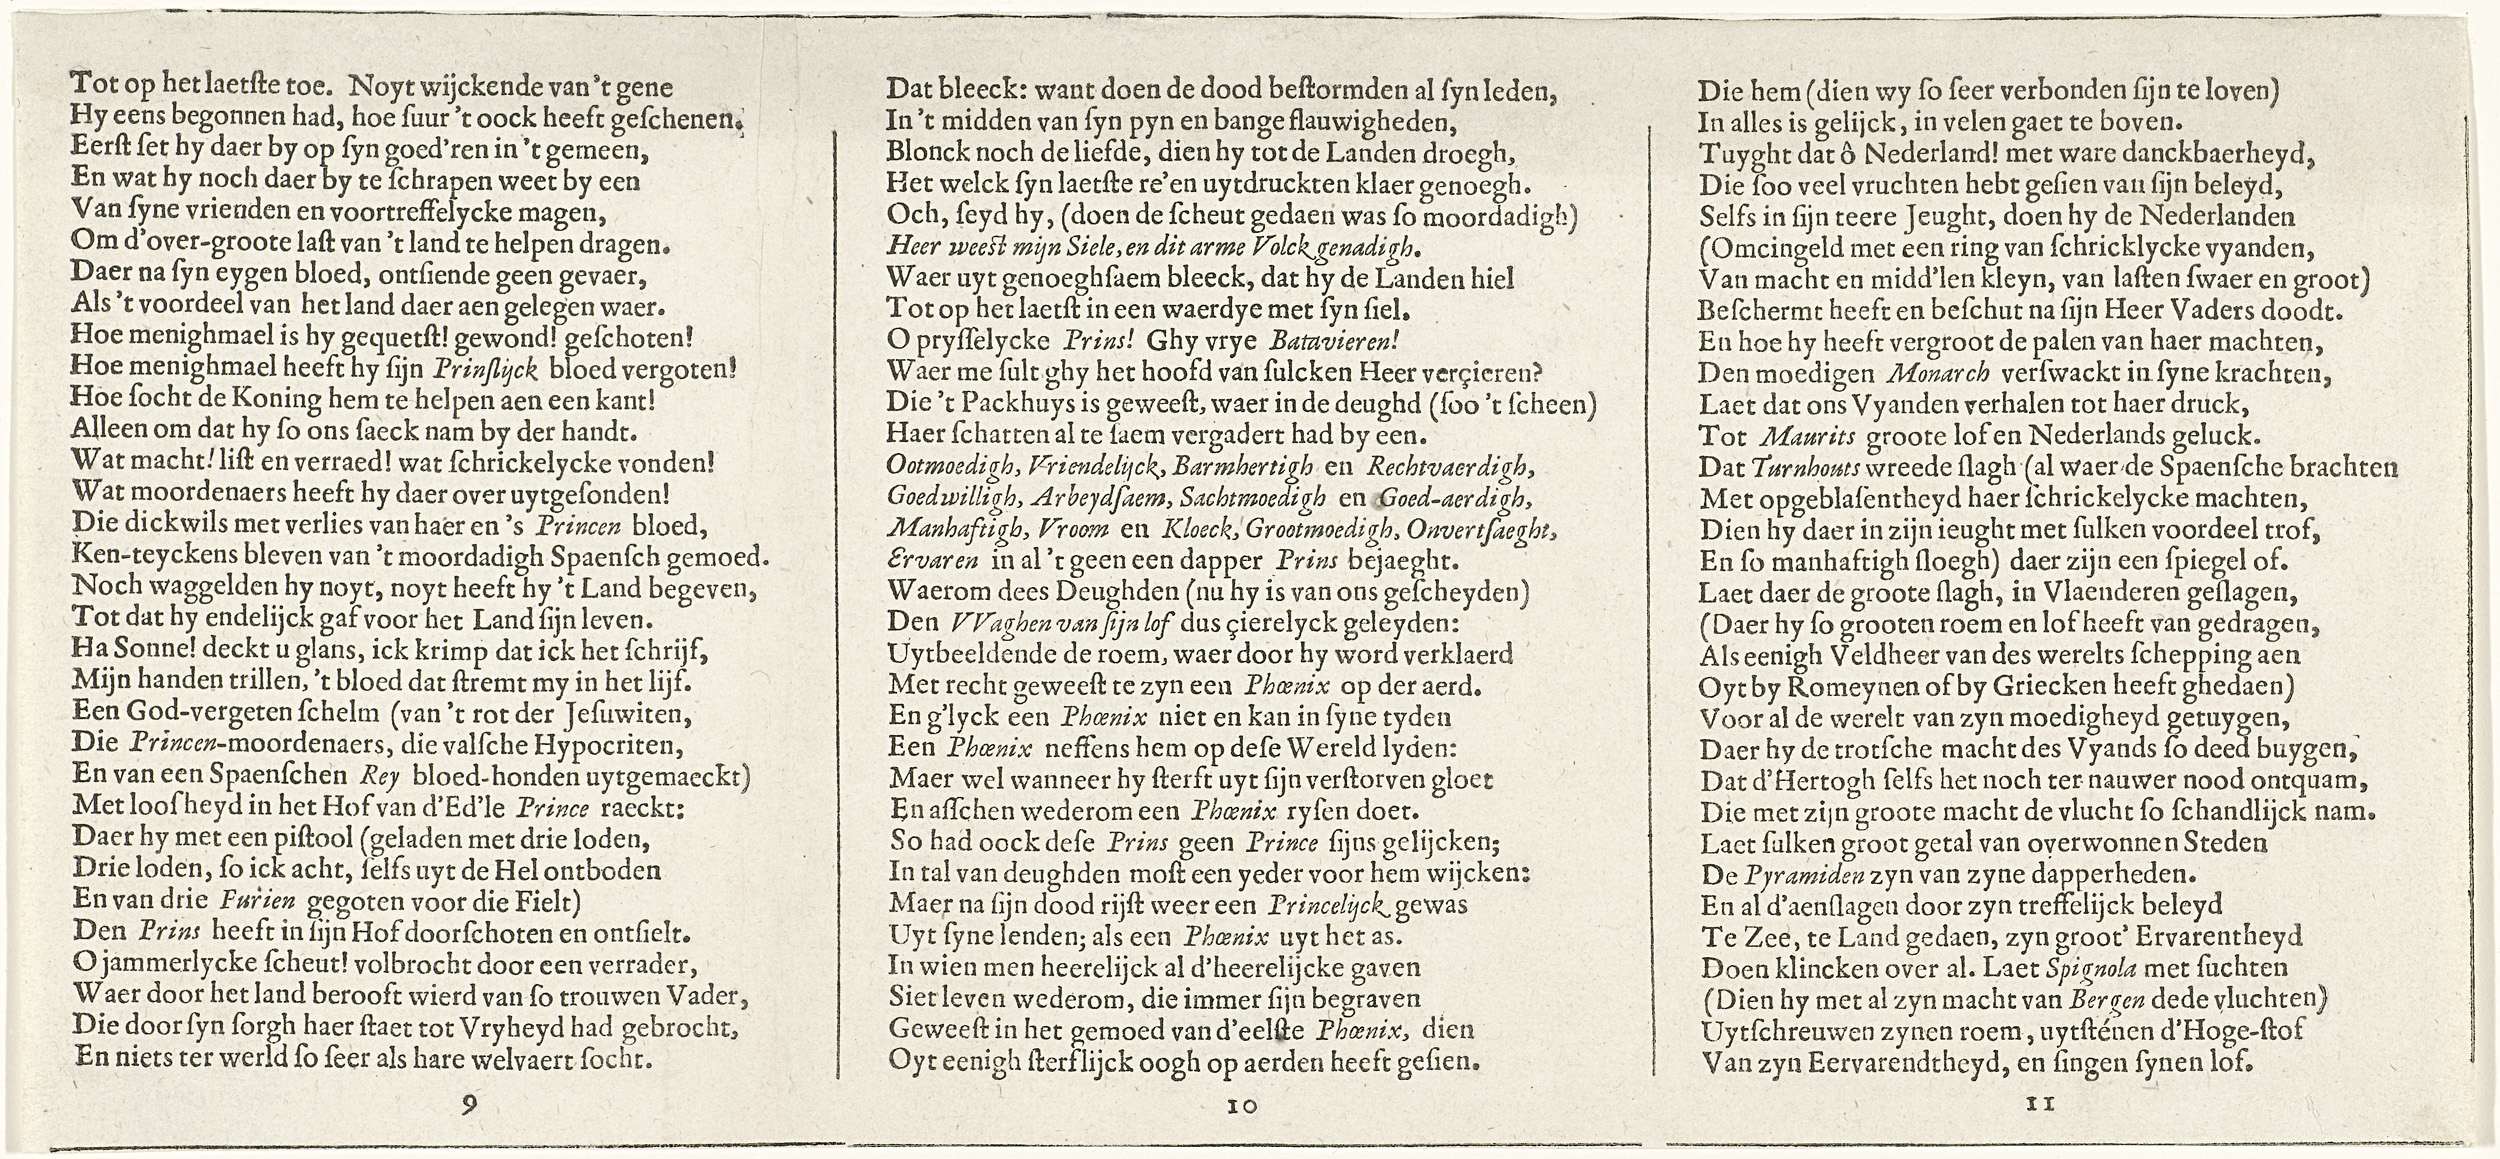 Tot op het laetſte toe. Noyt wijckende van 't gene
Hy eens begonnen had, hoe ſuur 't oock heeft geſchenen.
Eerſt ſet hy daer by op ſyn goed'ren in 't gemeen,
En wat hy noch daer by te ſchrapen weet by een
Van ſyne vrienden en voortreffelycke magen,
Om d'over-groote laſt van 't land te helpen dragen.
Daer na ſyn eygen bloed, ontſiende geen gevaer,
Als 't voordeel van het land daer aen gelegen waer.
Hoe menighmael is hy gequetſt! gewond! geſchoten!
Hoe menighmael heeft hy ſijn Prinſlijck bloed vergoten!
Hoe ſocht de Koning hem te helpen aen een kant!
Alleen om dat hy ſo ons ſaeck nam by der handt.
Wat macht! liſt en verraed! wat ſchrickelycke vonden!
Wat moordenaers heeft hy daer over uytgeſonden!
Die dickwils met verlies van haer en 's Princen bloed,
Ken-teyckens bleven van 't moordadigh Spaenſch gemoed.
Noch waggelden hy noyt, noyt heeft hy 't Land begeven,
Tot dat hy endelijck gaf voor het Land ſijn leven.
Ha Sonne! deckt u glans, ick krimp dat ick het ſchrijf,
Mijn handen trillen, 't bloed dat ſtremt my in het lijf.
Een God-vergeten ſchelm (van 't rot der Jeſuwiten,
Die Princen-moordenaers, die valſche Hypocriten,
En van een Spaenſchen Rey bloed-honden uytgemaeckt)
Met loosheyd in het Hof van d'Ed'le Prince raeckt:
Daer hy met een piſtool (geladen met drie loden,
Drie loden, ſo ick acht, ſelfs uyt de Hel ontboden
En van drie Furien gegoten voor die Fielt)
Den Prins heeft in ſijn Hof doorſchoten en ontſielt.
O jammerlycke ſcheut! volbrocht door een verrader,
Waer door het land berooft wierd van ſo trouwen Vader,
Die door ſyn ſorgh haer ſtaet tot Vryheyd had gebrocht,
En niets ter werld ſo ſeer als hare welvaert ſocht.
9
Dat bleeck: want doen de dood beſtormden al ſyn leden,
In 't midden van ſyn pyn en bange flauwigheden,
Blonck noch de liefde, dien hy tot de Landen droegh,
Het welck ſyn laetſte re'en uytdruckten klaer genoegh.
Och, ſeyd hy, (doen de ſcheut gedaen was ſo moordadigh)
Heer weeſt mijn Siele, en dit arme Volck genadigh.
Waer uyt genoeghſaem bleeck, dat hy de Landen hiel
Tot op het laetſt in een waerdye met ſyn ſiel.
O pryſſelycke Prins! Ghy vrye Batavieren!
Waer me ſult ghy het hoofd van ſulcken Heer verçieren?
Die 't Packhuys is geweeſt, waer in de deughd (ſoo 't ſcheen)
Haer ſchatten al te ſaem vergadert had by een.
Ootmoedigh, Vriendelijck, Barmhertigh en Rechtvaerdigh,
Goedwilligh, Arbeydſaem, Sachtmoedigh en Goed-aerdigh,
Manhaftigh, Vroom en Kloeck, Grootmoedigh, Onvertſaeght,
Ervaren in al 't geen een dapper Prins bejaeght.
Waerom dees Deughden (nu hy is van ons geſcheyden)
Den VVaghen van ſijn lof dus çierelyck geleyden:
Uytbeeldende de roem, waer door hy word verklaerd
Met recht geweeſt te zyn een Phœnix op der aerd.
En g'lyck een Phœnix niet en kan in ſyne tyden
Een Phœnix neffens hem op deſe Wereld lyden:
Maer wel wanneer hy ſterft uyt ſijn verſtorven gloet
En aſſchen wederom een Phœnix ryſen doet.
So had oock deſe Prins geen Prince ſijns gelijcken;
In tal van deughden moſt een yeder voor hem wijcken:
Maer na ſijn dood rijſt weer een Princelijck gewas
Uyt ſyne lenden; als een Phœnix uyt het as.
In wien men heerelijck al d'heerelijcke gaven
Siet leven wederom, die immer ſijn begraven
Geweeſt in het gemoed van d'eelſte Phœnix, dien
Oyt eenigh ſterflijck oogh op aerden heeft geſien.
10
Die hem (dien wy ſo ſeer verbonden ſijn te loven)
In alles is gelijck, in velen gaet te boven.
Tuyght dat ô Nederland! met ware danckbaerheyd,
Die ſoo veel vruchten hebt geſien van ſijn beleyd,
Selfs in ſijn teere Jeught, doen hy de Nederlanden
(Omcingeld met een ring van ſchricklycke vyanden,
Van macht en midd'len kleyn, van laſten ſwaer en groot)
Beſchermt heeft en beſchut na ſijn Heer Vaders doodt.
En hoe hy heeft vergroot de palen van haer machten,
Den moedigen Monarch verſwackt in ſyne krachten,
Laet dat ons Vyanden verhalen tot haer druck,
Tot Maurits groote lof en Nederlands geluck.
Dat Turnhouts wreede ſlagh (al waer de Spaenſche brachten
Met opgeblaſentheyd haer ſchrickelycke machten,
Dien hy daer in zijn ieught met ſulken voordeel trof,
En ſo manhaftigh ſloegh) daer zijn een ſpiegel of.
Laet daer de groote ſlagh, in Vlaenderen geſlagen,
(Daer hy ſo grooten roem en lof heeft van gedragen,
Als eenigh Veldheer van des werelts ſchepping aen
Oyt by Romeynen of by Griecken heeft ghedaen)
Voor al de werelt van zyn moedigheyd getuygen,
Daer hy de trotſche macht des Vyands ſo deed buygen,
Dat d'Hertogh ſelfs het noch ter nauwer nood ontquam,
Die met zijn groote macht de vlucht ſo ſchandlijck nam.
Laet ſulken groot getal van overwonnen Steden
De Pyramiden zyn van zyne dapperheden.
En al d'aenſlagen door zyn treffelijck beleyd
Te Zee, te Land gedaen, zyn groot' Ervarentheyd
Doen klincken over al. Laet Spignola met ſuchten
(Dien hy met al zyn macht van Bergen dede vluchten)
Uytſchreuwen zynen roem, uytſténen d'Hoge-ſtof
Van zyn Eervarendtheyd, en ſingen ſynen lof.
11